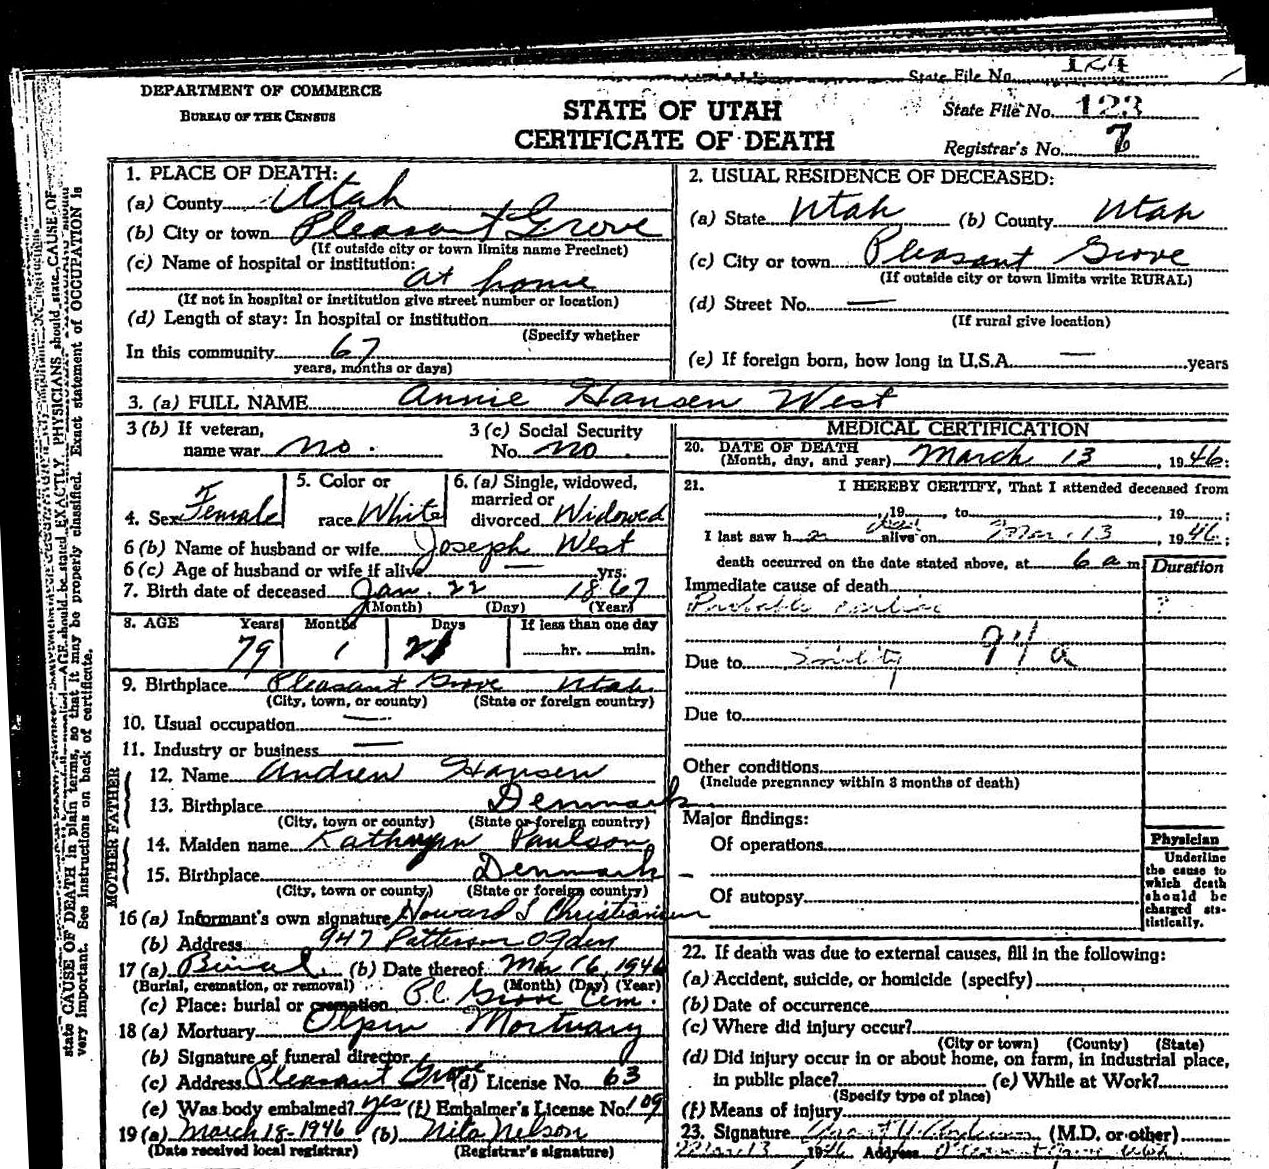 State File No. 124
DEPARTMENT OF COMMERCE
BUREAU OF THE CENSUS
STATE OF UTAH
CERTIFICATE OF DEATH
State File No. 123
Registrar's No. 7
state CAUSE OF DEATH in plain terms, so that it may be properly classified. Exact statement of OCCUPATION is
very important. See instructions on back of certificate.
1. PLACE OF DEATH:
(a) County Utah
(b) City or town Pleasant Grove
(If outside city or town limits name Precinct)
(c) Name of hospital or institution:
at home
(If not in hospital or institution give street number or location)
(d) Length of stay: In hospital or institution
(Specify whether
In this community 67
years, months or days)
2. USUAL RESIDENCE OF DECEASED:
(a) State Utah (b) County Utah
(c) City or town Pleasant Grove
(If outside city or town limits write RURAL)
(d) Street No. —
(If rural give location)
(e) If foreign born, how long in U.S.A. — years
3. (a) FULL NAME Annie Hansen West
3 (b) If veteran,
name war no.
3 (c) Social Security
No. no.
4. Sex Female
5. Color or
race White
6. (a) Single, widowed,
married or
divorced Widowed
6 (b) Name of husband or wife Joseph West
6 (c) Age of husband or wife if alive — yrs.
7. Birth date of deceased Jan. 22 1867
(Month) (Day) (Year)
8. AGE Years Months Days If less than one day
79 1 21 hr. min.
9. Birthplace Pleasant Grove Utah.
(City, town, or county) (State or foreign country)
10. Usual occupation —
11. Industry or business —
FATHER
12. Name Andrew Hansen
13. Birthplace Denmark
(City, town or county) (State or foreign country)
MOTHER
14. Maiden name Kathryn Paulson
15. Birthplace Denmark
(City, town or county) (State or foreign country)
16 (a) Informant's own signature Howard S Christiansen
(b) Address 947 Patterson Ogden
17 (a) Burial. (b) Date thereof Mar 16, 1946
(Burial, cremation, or removal) (Month) (Day) (Year)
(c) Place: burial or cremation Pl. Grove Cem.
18 (a) Mortuary Olpin Mortuary
(b) Signature of funeral director
(c) Address Pleasant Grove (d) License No. 63
(e) Was body embalmed? yes (f) Embalmer's License No. 109
19 (a) March 18-1946 (b) Nita Nelson
(Date received local registrar) (Registrar's signature)
MEDICAL CERTIFICATION
20. DATE OF DEATH
(Month, day, and year) March 13, 1946:
21. I HEREBY CERTIFY, That I attended deceased from
, 19 , to , 19 ;
I last saw h alive on Mar. 13, 1946;
death occurred on the date stated above, at 6 a m
Duration
Immediate cause of death
Probable ?
94a
Due to Senility
Due to
Other conditions
(Include pregnancy within 3 months of death)
Major findings:
Of operations
Of autopsy
Physician
Underline
the cause to
which death
should be
charged sta-
tistically.
22. If death was due to external causes, fill in the following:
(a) Accident, suicide, or homicide (specify)
(b) Date of occurrence
(c) Where did injury occur?
(City or town) (County) (State)
(d) Did injury occur in or about home, on farm, in industrial place,
in public place? (e) While at Work?
(Specify type of place)
(f) Means of injury
23. Signature (M.D. or other)
Mar 13 1946 Address Pleasant Grove Utah